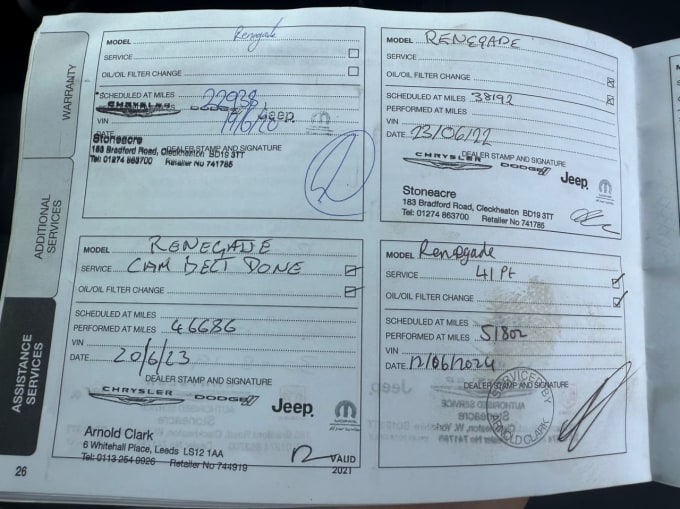 WARRANTY
ADDITIONAL SERVICES
ASSISTANCE SERVICES
MODEL Renegade
SERVICE
OIL/OIL FILTER CHANGE
SCHEDULED AT MILES 22938
CHRYSLER DODGE Jeep
VIN 19/6/20
DATE
DEALER STAMP AND SIGNATURE
Stoneacre
183 Bradford Road, Cleckheaton BD19 3TT
Tel: 01274 863700 Retailer No 741785
MODEL RENEGADE
SERVICE
OIL/OIL FILTER CHANGE
SCHEDULED AT MILES 38192
PERFORMED AT MILES
VIN
DATE 23/06/22
DEALER STAMP AND SIGNATURE
CHRYSLER DODGE Jeep
Stoneacre
183 Bradford Road, Cleckheaton BD19 3TT
Tel: 01274 863700 Retailer No 741785
MODEL RENEGADE
SERVICE CAM BELT DONE
OIL/OIL FILTER CHANGE
SCHEDULED AT MILES
PERFORMED AT MILES 46686
VIN
DATE 20/6/23
DEALER STAMP AND SIGNATURE
CHRYSLER DODGE Jeep
Arnold Clark
6 Whitehall Place, Leeds LS12 1AA
Tel: 0113 254 9926 Retailer No 744919
VALID
2021
MODEL Renegade
SERVICE 41 Pt
OIL/OIL FILTER CHANGE
SCHEDULED AT MILES
PERFORMED AT MILES 51802
VIN
DATE 12/06/2024
DEALER STAMP AND SIGNATURE
SERVICED BY
ARNOLD CLARK
26